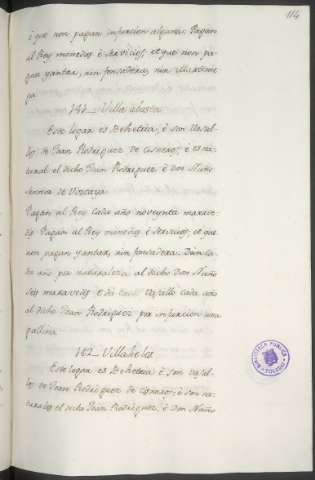 114
é que non pagan infurcion alguna. Pagan
al Rey monedas é servicios, et que non pa
gan yantar, nin fonsadera, nin
pa
Villa
Este logar es Behetria, é son Vasa-
llos de Juan Rodriguez de Cisneros, é es na-
tural el dicho Juan Rodriguez, é Don Nuño
Sennor de Vizcaya
Pagan al Rey cada año noventa marave-
dis Pagan al Rey monedas é servicios, et que
non pagan yantar, nin fonsadera. Dan ca-
da año por naturaleza al dicho Don Nuño
seis maravedis é da cada Vasallo cada año
al dicho Juan Rodriguez por infurcion una
gallina
Villahelos
Este logar es Behetria é son Vasal-
los de Juan Rodriguez de Cisneros, é son na-
turales el dicho Juan Rodriguez, é Don Nuño
BIBLIOTECA PUBLICA
TOLEDO